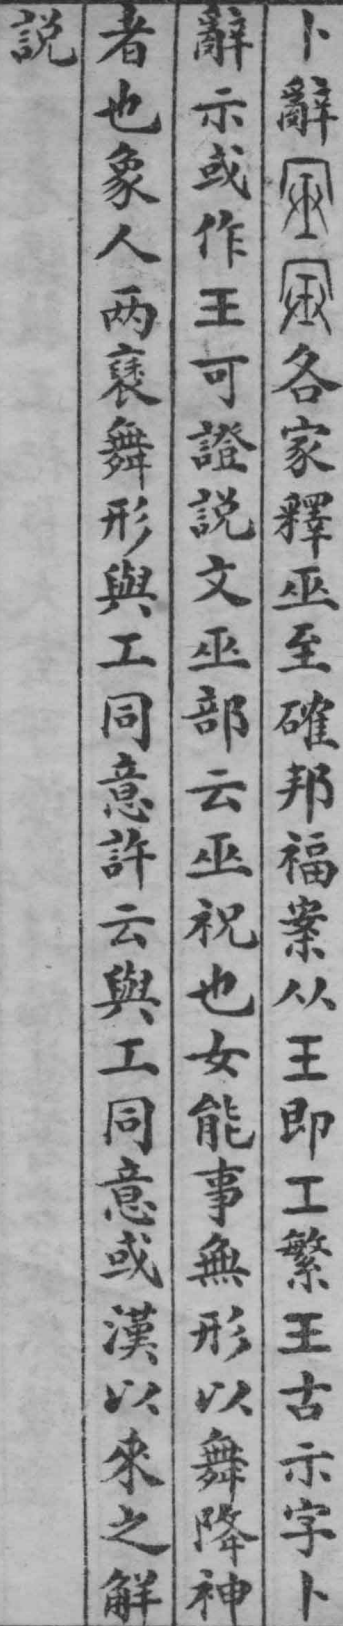 卜辭各家釋巫至確邦福案从王即工繁王古示字卜
辭示或作王可證說文巫部云巫祝也女能事無形以舞降神
者也象人两褎舞形與工同意許云與工同意或漢以來之解
説